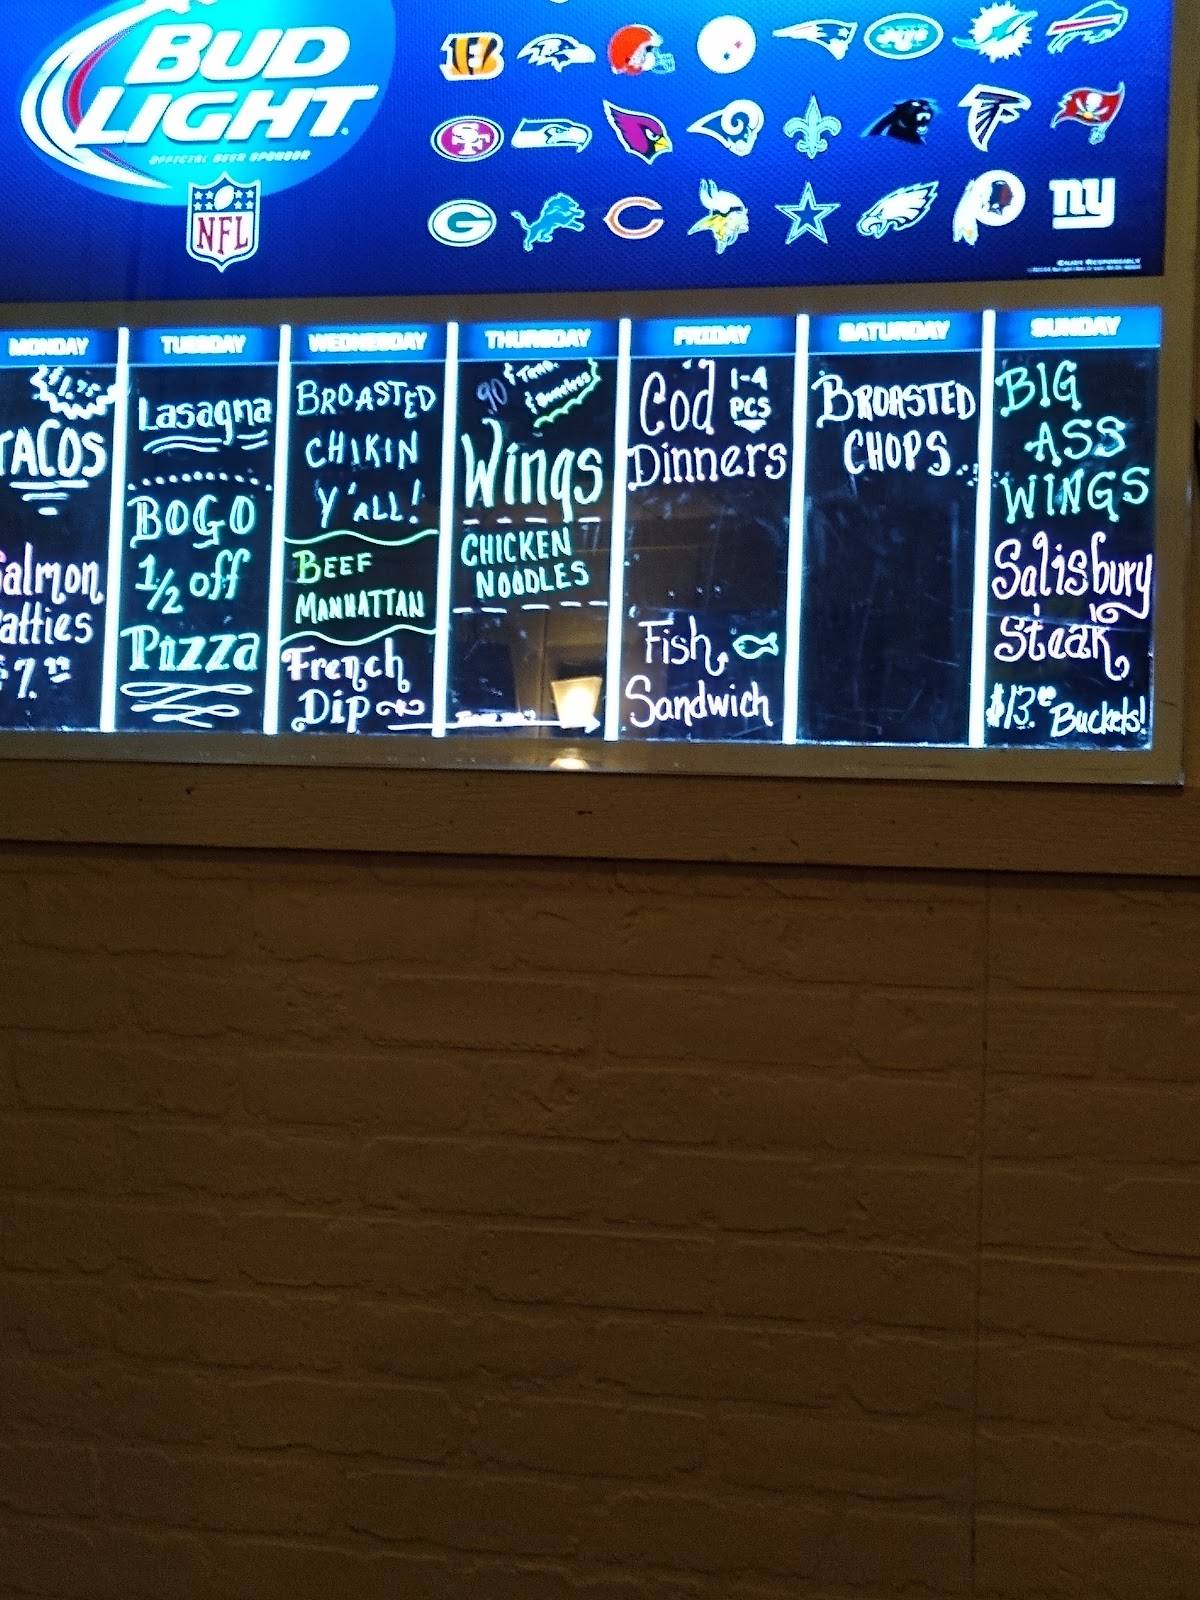 BUD
LIGHT
OFFICIAL BEER SPONSOR
NFL
JETS
SF
G
C
ny
ENJOY RESPONSIBLY
MONDAY
$1.75
TACOS
almon
atties
$7.99
TUESDAY
Lasagna
BOGO
1/2 off
Pizza
WEDNESDAY
BROASTED
CHIKIN
Y'ALL!
BEEF
MANHATTAN
French
Dip
THURSDAY
.90 Trad.
& Boneless
Wings
CHICKEN
NOODLES
FRIDAY
Cod 1-4
PCS
Dinners
Fish
Sandwich
SATURDAY
BROASTED
CHOPS
SUNDAY
BIG
ASS
WINGS
Salisbury
Steak
$13. Buckets!